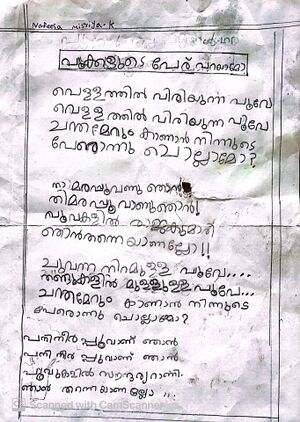 Nafeesa Misriya.K
പൂക്കളുടെ പേര് പറയാമോ
വെള്ളത്തിൽ വിരിയുന്ന പൂവേ
വെള്ളത്തിൽ വിരിയുന്ന പൂവേ
ചന്തമേറും കാണാൻ നിന്നുടെ
പേരൊന്നു ചൊല്ലാമോ?
താമരപ്പൂവാണു ഞാൻ
താമരപ്പൂവാണുഞാൻ!
പൂവുകളിൽ രാജകുമാരി
ഞാൻതന്നെയാണല്ലോ!!
ചുവന്ന നിറമുള്ള പൂവേ....
തണ്ടുകളിൽ മുള്ളുള്ള പൂവേ...
ചന്തമേറും കാണാൻ നിന്നുടെ
പേരൊന്നു ചൊല്ലാമോ?
പനിനീർ പ്പൂവാണ് ഞാൻ
പനിനീർ പ്പൂവാണ് ഞാൻ
പൂവുകളിൽ സൗന്ദര്യറാണി
ഞാൻ തന്നെ യാണ ല്ലോ ..
Scanned with CamScanner